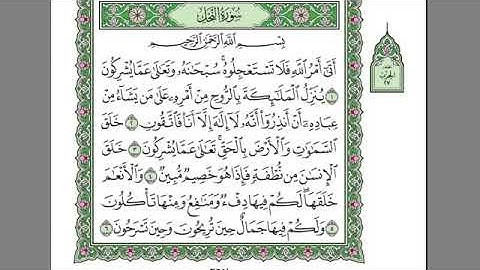 سُورَةُ النَّحْلِ
بِسْمِ اللَّهِ الرَّحْمَٰنِ الرَّحِيمِ
أَتَىٰ أَمْرُ اللَّهِ فَلَا تَسْتَعْجِلُوهُ ۚ سُبْحَانَهُ وَتَعَالَىٰ عَمَّا يُشْرِكُونَ
١ يُنَزِّلُ الْمَلَائِكَةَ بِالرُّوحِ مِنْ أَمْرِهِ عَلَىٰ مَن يَشَاءُ مِنْ
عِبَادِهِ أَنْ أَنذِرُوا أَنَّهُ لَا إِلَٰهَ إِلَّا أَنَا فَاتَّقُونِ ٢ خَلَقَ
السَّمَاوَاتِ وَالْأَرْضَ بِالْحَقِّ ۚ تَعَالَىٰ عَمَّا يُشْرِكُونَ ٣ خَلَقَ
الْإِنسَانَ مِن نُّطْفَةٍ فَإِذَا هُوَ خَصِيمٌ مُّبِينٌ ٤ وَالْأَنْعَامَ
خَلَقَهَا ۗ لَكُمْ فِيهَا دِفْءٌ وَمَنَافِعُ وَمِنْهَا تَأْكُلُونَ
٥ وَلَكُمْ فِيهَا جَمَالٌ حِينَ تُرِيحُونَ وَحِينَ تَسْرَحُونَ ٦